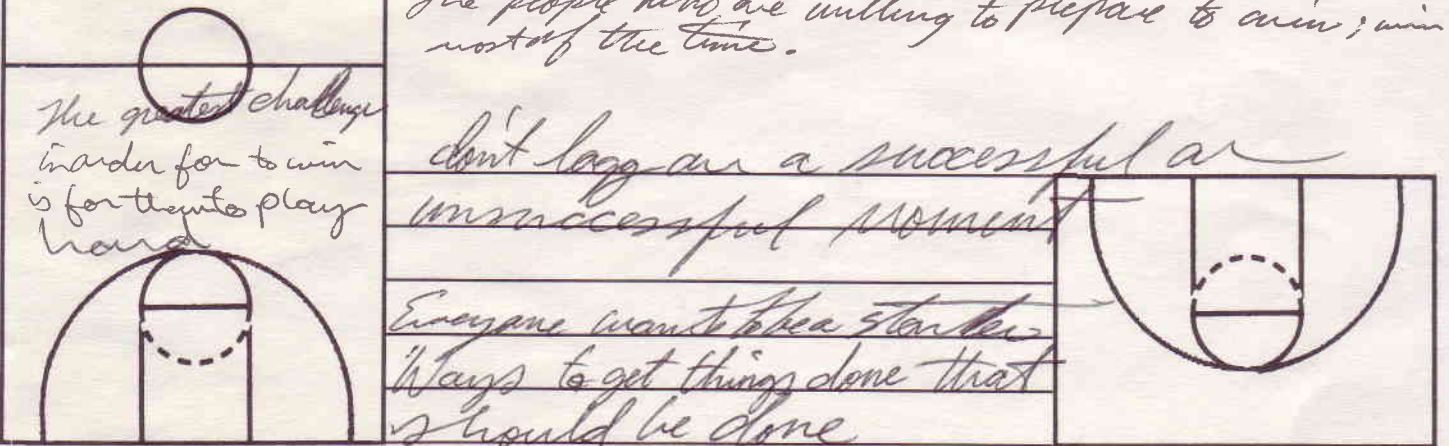 The people who are willing to prepare to win; win
most of the time.
The greatest challenge
in order for to win
is for them to play
hard
don't lagg on a successful or
unsuccessful moment
Everyone wants to be a starter
Ways to get things done that
should be done